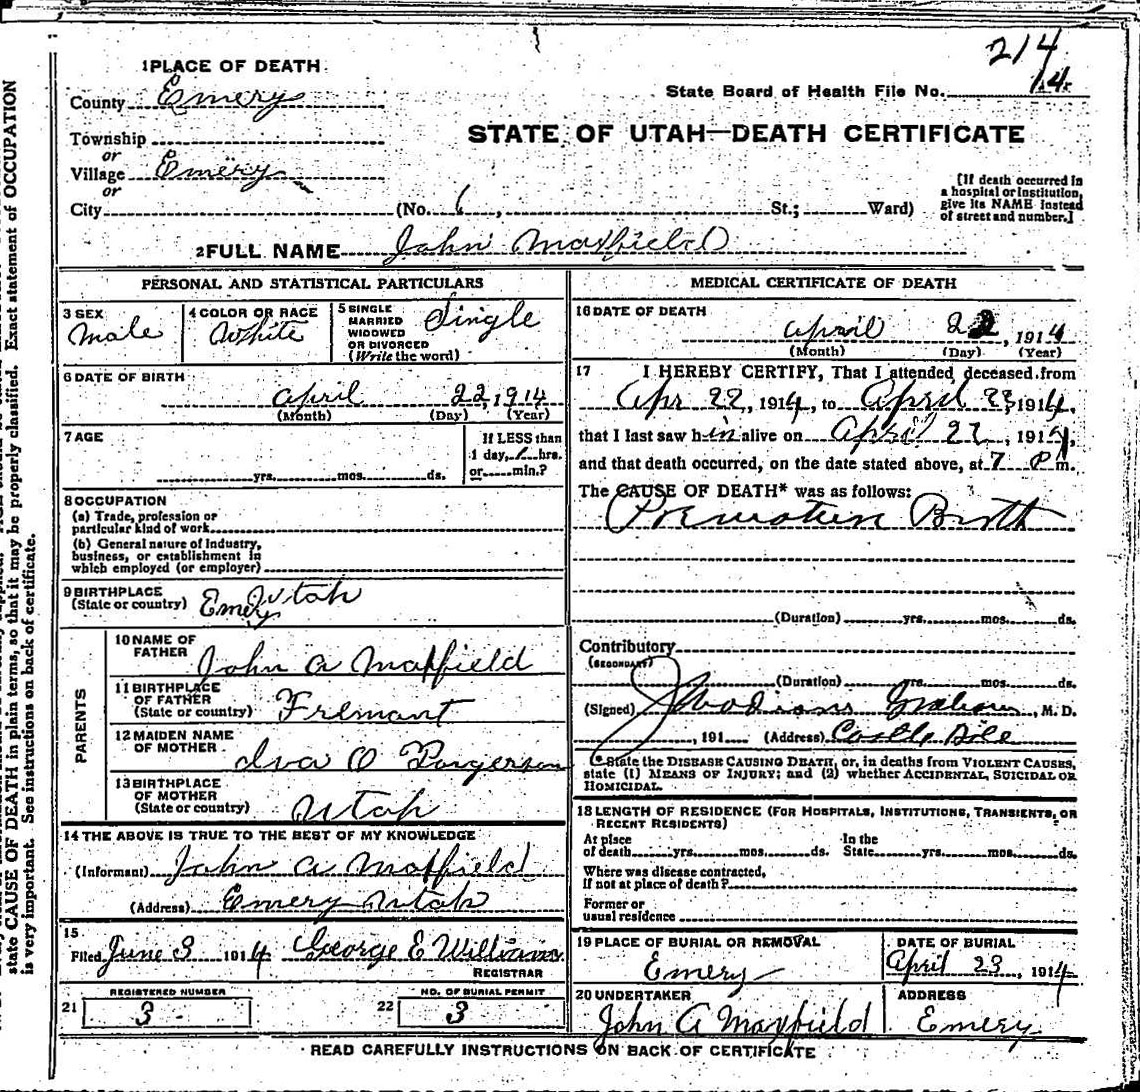 214
1 PLACE OF DEATH
County Emery
State Board of Health File No. 14
Township
or
Village Emery
or
STATE OF UTAH—DEATH CERTIFICATE
[If death occurred in
a hospital or institution,
give its NAME instead
of street and number.]
City (No. St.; Ward)
2 FULL NAME John Maxfield
PERSONAL AND STATISTICAL PARTICULARS
3 SEX
Male
4 COLOR OR RACE
White
5 SINGLE
MARRIED
WIDOWED
OR DIVORCED
(Write the word)
Single
6 DATE OF BIRTH
April 22, 1914
(Month) (Day) (Year)
7 AGE
yrs. mos. ds.
If LESS than
1 day, hrs.
or min.?
8 OCCUPATION
(a) Trade, profession or
particular kind of work
(b) General nature of industry,
business, or establishment in
which employed (or employer)
9 BIRTHPLACE
(State or country) Emery Utah
PARENTS
10 NAME OF
FATHER
John A Maxfield
11 BIRTHPLACE
OF FATHER
(State or country) Fremont
12 MAIDEN NAME
OF MOTHER
Iva O
13 BIRTHPLACE
OF MOTHER
(State or country) Utah
14 THE ABOVE IS TRUE TO THE BEST OF MY KNOWLEDGE
(Informant) John A Maxfield
(Address) Emery Utah
15
Filed June 3 1914 George E Williams
REGISTRAR
REGISTERED NUMBER
21 3
NO. OF BURIAL PERMIT
22 3
MEDICAL CERTIFICATE OF DEATH
16 DATE OF DEATH
April 22, 1914
(Month) (Day) (Year)
17 I HEREBY CERTIFY, That I attended deceased from
Apr 22, 1914, to April 1914,
that I last saw him alive on April 22, 1914,
and that death occurred, on the date stated above, at 7 P m.
The CAUSE OF DEATH* was as follows:
Premature Birth
(Duration) yrs. mos. ds.
Contributory
(SECONDARY)
(Duration) yrs. mos. ds.
(Signed) , M. D.
, 191 (Address) Castle Dale
State the DISEASE CAUSING DEATH, or, in deaths from VIOLENT CAUSES,
state (1) MEANS OF INJURY; and (2) whether ACCIDENTAL, SUICIDAL OR
HOMICIDAL.
18 LENGTH OF RESIDENCE (FOR HOSPITALS, INSTITUTIONS, TRANSIENTS, OR
RECENT RESIDENTS)
At place In the
of death yrs. mos. ds. State yrs. mos. ds.
Where was disease contracted,
if not at place of death?
Former or
usual residence
19 PLACE OF BURIAL OR REMOVAL
Emery
DATE OF BURIAL
April 23, 1914
20 UNDERTAKER
John A Maxfield
ADDRESS
Emery
READ CAREFULLY INSTRUCTIONS ON BACK OF CERTIFICATE
OCCUPATION
Exact statement of OCCUPATION
state CAUSE OF DEATH in plain terms, so that it may be properly classified.
is very important. See instructions on back of certificate.